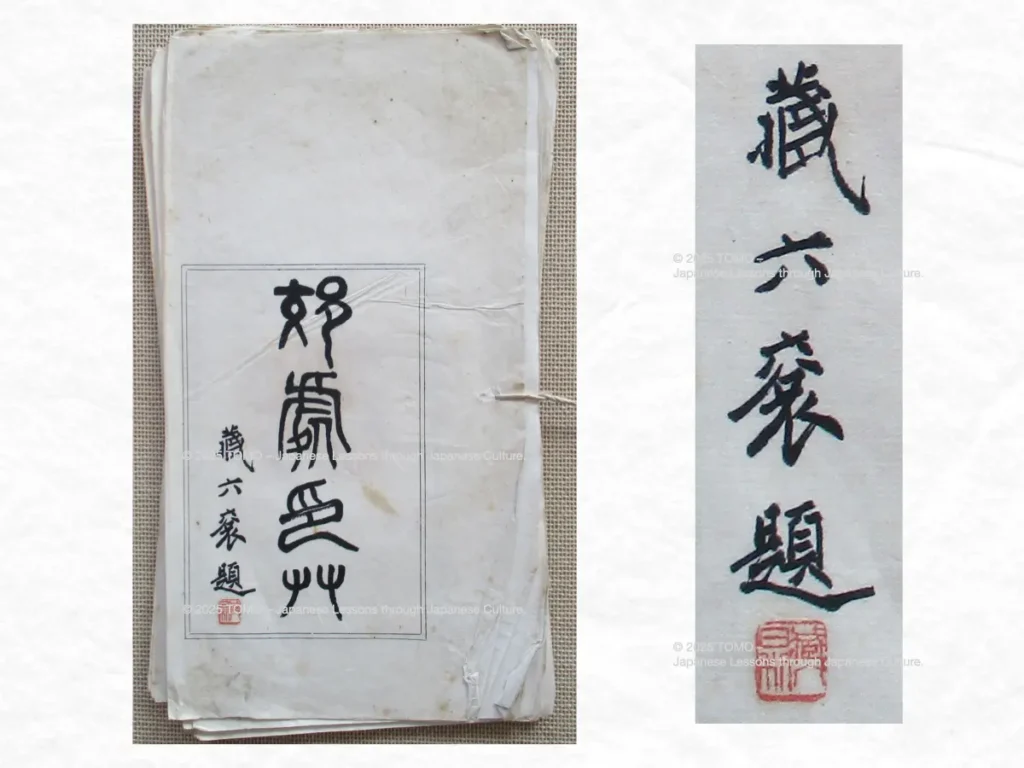 郊
印艸
藏六裒題
藏六裒題
© 2025 TOMO – Japanese Lessons through Japanese Culture.
© 2025 TOMO – Japanese Lessons through Japanese Culture.
© 2025 TOMO –
Japanese Lessons through Japanese Culture.
© 2025 TOMO –
Japanese Lessons through Japanese Culture.